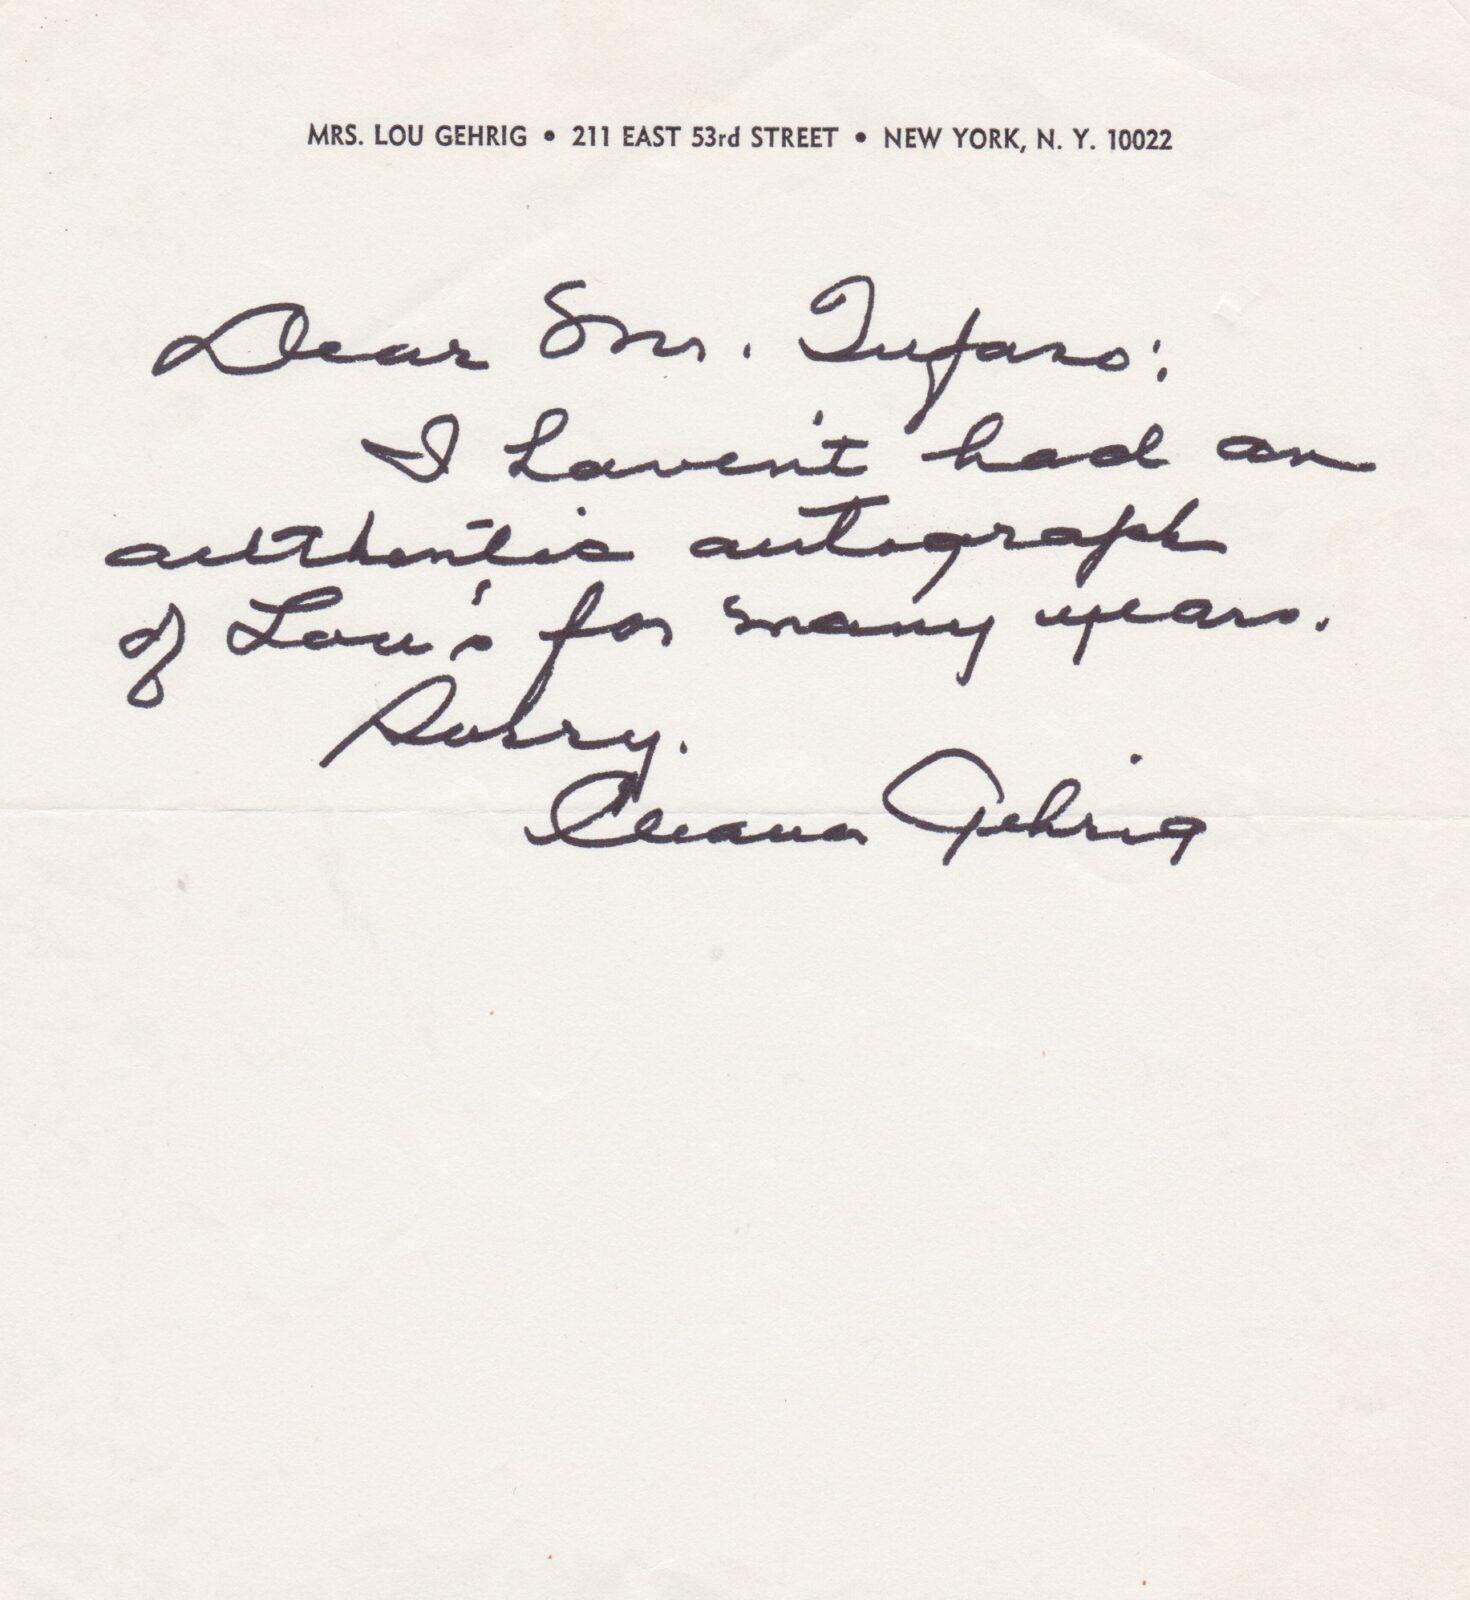 MRS. LOU GEHRIG • 211 EAST 53rd STREET • NEW YORK, N. Y. 10022
Dear Mr. Tufaro:
I haven't had an
authentic autograph
of Lou's for many years.
Sorry.
Eleanor Gehrig